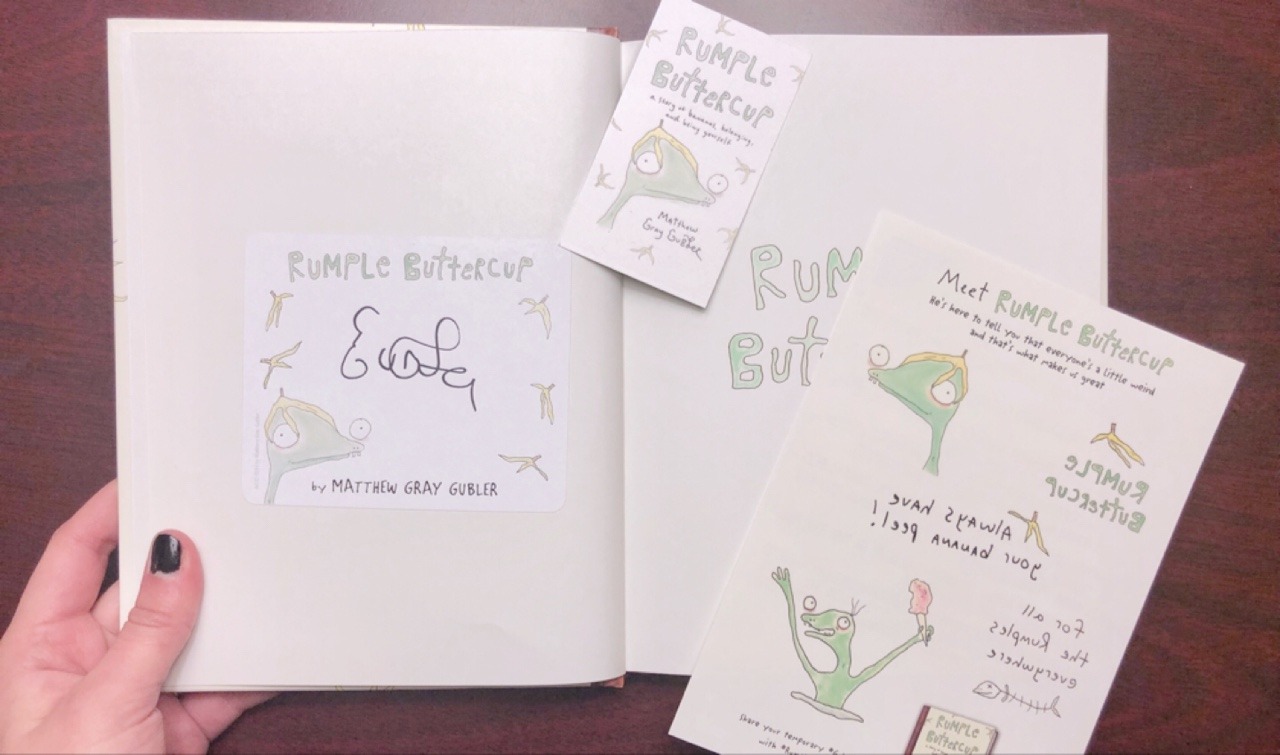 RUMPLE BUTTERCUP
by MATTHEW GRAY GUBLER
RUMPLE
BUTTERCUP
a story of bananas, belonging,
and being yourself
Matthew
Gray Gubler
RUM
BUT
Meet RUMPLE BUTTERCUP
He's here to tell you that everyone's a little weird
and that's what makes us great
RUMPLE
BUTTERCUP
Always have
your banana peel!
For all
the Rumples
everywhere
Share your temporary
with
RUMPLE
BUTTERCUP